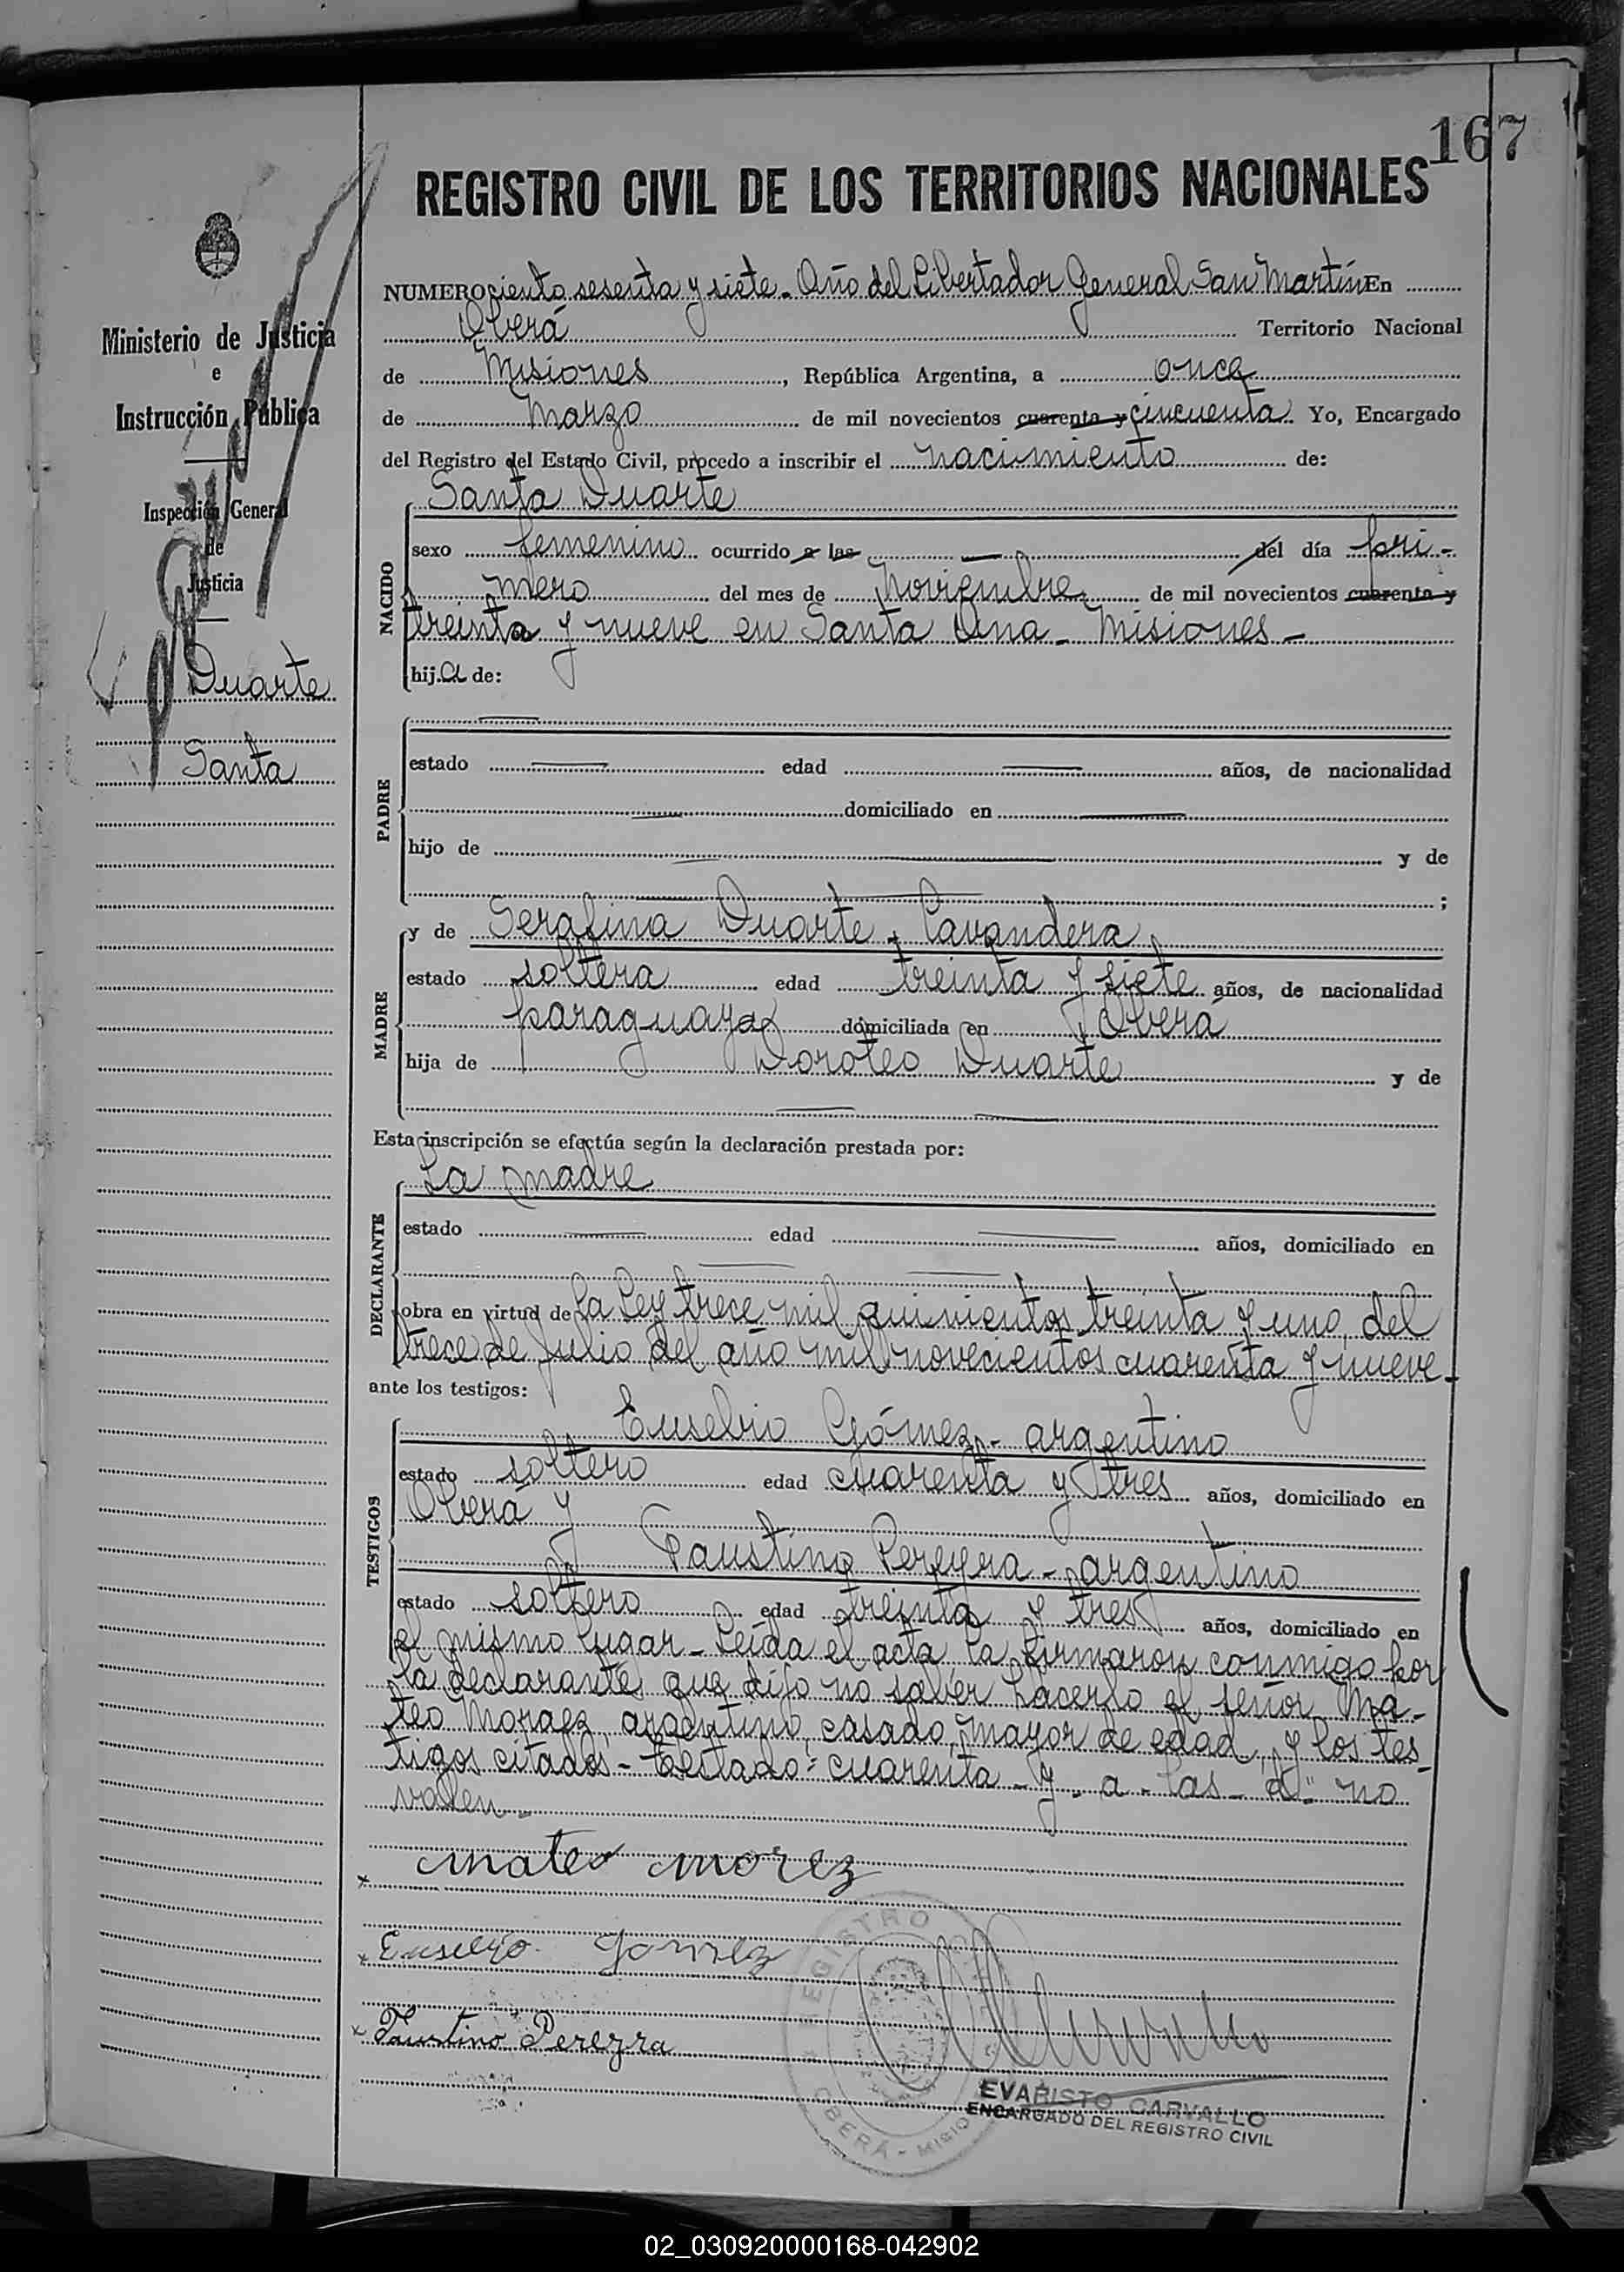 167
REGISTRO CIVIL DE LOS TERRITORIOS NACIONALES
NUMERO ciento sesenta y siete - Año del Libertador General San Martín En
Oberá Territorio Nacional
de Misiones, República Argentina, a once
de Marzo de mil novecientos cuarenta y cincuenta. Yo, Encargado
del Registro del Estado Civil, procedo a inscribir el nacimiento de:
Ministerio de Justicia
e
Instrucción Pública
Inspección General
de
Justicia
Duarte
Santa
NACIDO
Santa Duarte
sexo femenino ocurrido a las — del día pri-
mero del mes de Noviembre de mil novecientos cuarenta y
treinta y nueve en Santa Ana - Misiones -
hija de:
PADRE
estado — edad — años, de nacionalidad
— domiciliado en —
hijo de — y de
— ;
MADRE
y de Serafina Duarte, Lavandera,
estado soltera edad treinta y siete años, de nacionalidad
paraguaya domiciliada en Oberá
hija de Doroteo Duarte y de
Esta inscripción se efectúa según la declaración prestada por:
DECLARANTE
La madre
estado — edad — años, domiciliado en
obra en virtud de La Ley trece mil quinientos treinta y uno, del
trece de Julio del año mil novecientos cuarenta y nueve -
ante los testigos:
TESTIGOS
Eusebio Gómez - argentino
estado soltero edad cuarenta y tres años, domiciliado en
Oberá y
Faustino Pereyra - argentino
estado soltero edad treinta y tres años, domiciliado en
el mismo lugar - Leída el acta, la firmaron conmigo por
la declarante que dijo no saber hacerlo el señor Ma-
teo Moraez, argentino, casado, mayor de edad, y los tes-
tigos citados - Testado: cuarenta - y - a - las - d" no
valen -
x mateo morez
x Eusebio Gomez
x Faustino Pereyra
REGISTRO
OBERÁ - MISIO
EVARISTO CARVALLO
ENCARGADO DEL REGISTRO CIVIL
02_030920000168-042902